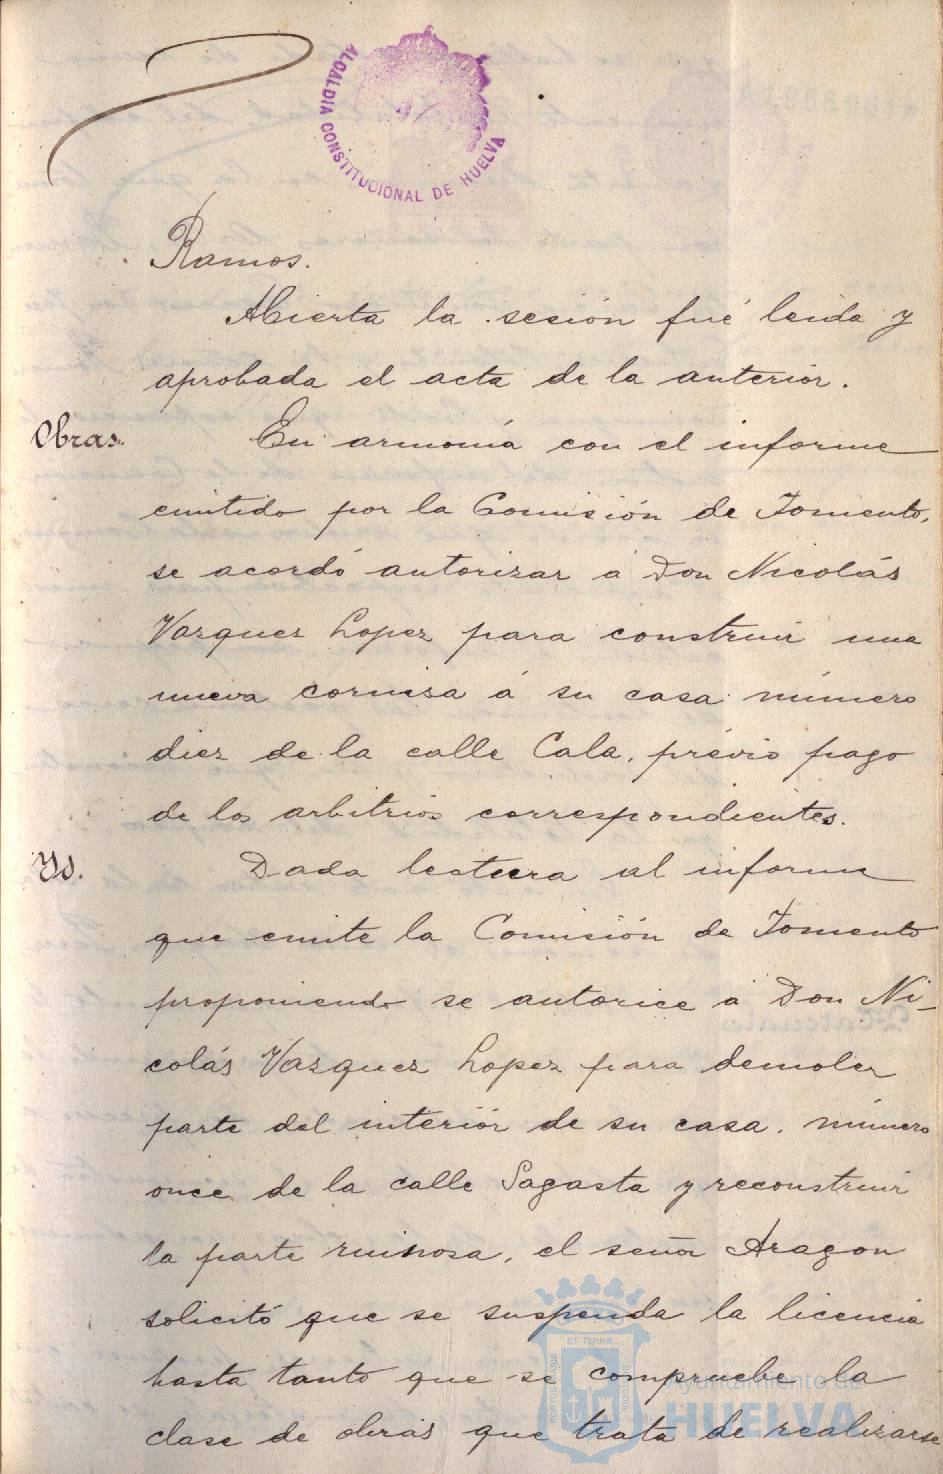 ALCALDIA CONSTITUCIONAL DE HUELVA
Ramos.
Abierta la sesión fué leida y
aprobada el acta de la anterior.
Obras.
En armonía con el informe
emitido por la Comisión de Fomento,
se acordó autorizar á Don Nicolás
Vazquez Lopez para construir una
nueva cornisa á su casa número
diez de la calle Cala, prévio pago
de los arbitrios correspondientes.
Yd.
Dada lectura al informe
que emite la Comisión de Fomento
proponiendo se autorice á Don Ni-
colás Vazquez Lopez para demoler
parte del interior de su casa, número
once de la calle Sagasta y reconstruir
la parte ruinosa, el señor Aragon
solicitó que se suspenda la licencia
hasta tanto que se compruebe la
clase de obras que trata de realizarse
ET TERRÆ
PORTUS MARIS
Ayuntamiento de
HUELVA